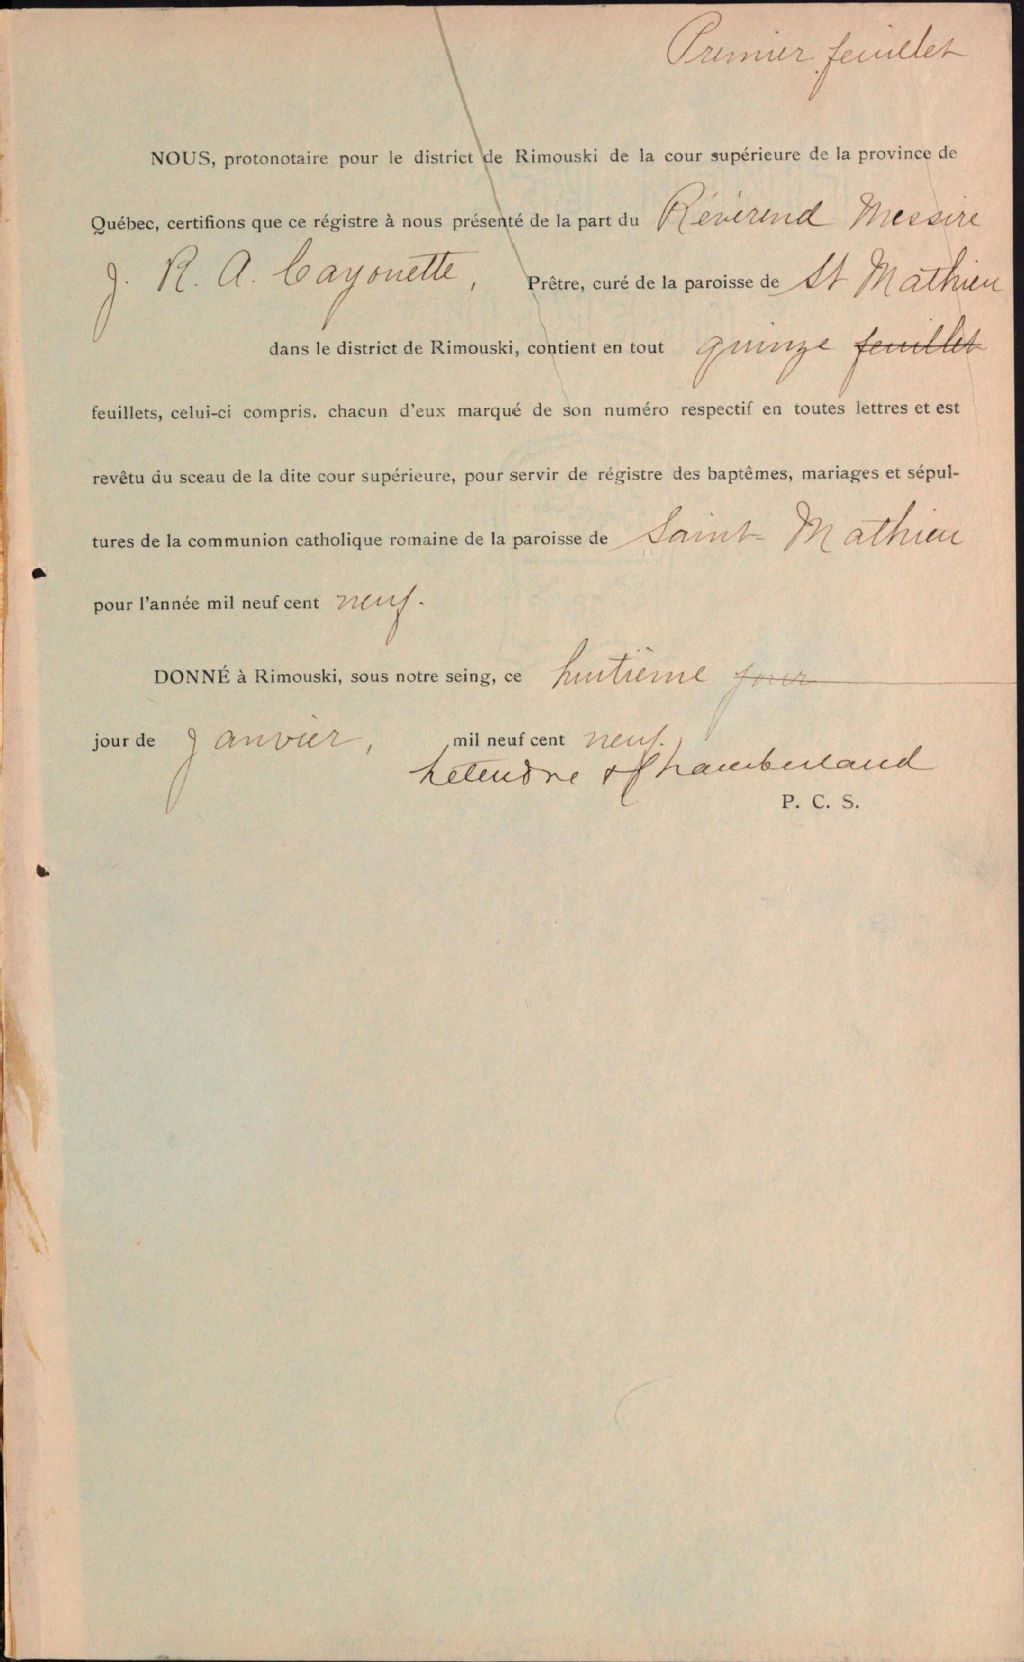 Premier feuillet
NOUS, protonotaire pour le district de Rimouski de la cour supérieure de la province de
Québec, certifions que ce régistre à nous présenté de la part du Révérend Messire
J. R. A. Cayouette, Prêtre, curé de la paroisse de St Mathieu
dans le district de Rimouski, contient en tout quinze feuillet
feuillets, celui-ci compris. chacun d'eux marqué de son numéro respectif en toutes lettres et est
revêtu du sceau de la dite cour supérieure, pour servir de régistre des baptêmes, mariages et sépul-
tures de la communion catholique romaine de la paroisse de Saint-Mathieu
pour l'année mil neuf cent neuf.
DONNÉ à Rimouski, sous notre seing, ce huitième jour
jour de Janvier, mil neuf cent neuf.
Letendre & Chamberland
P. C. S.